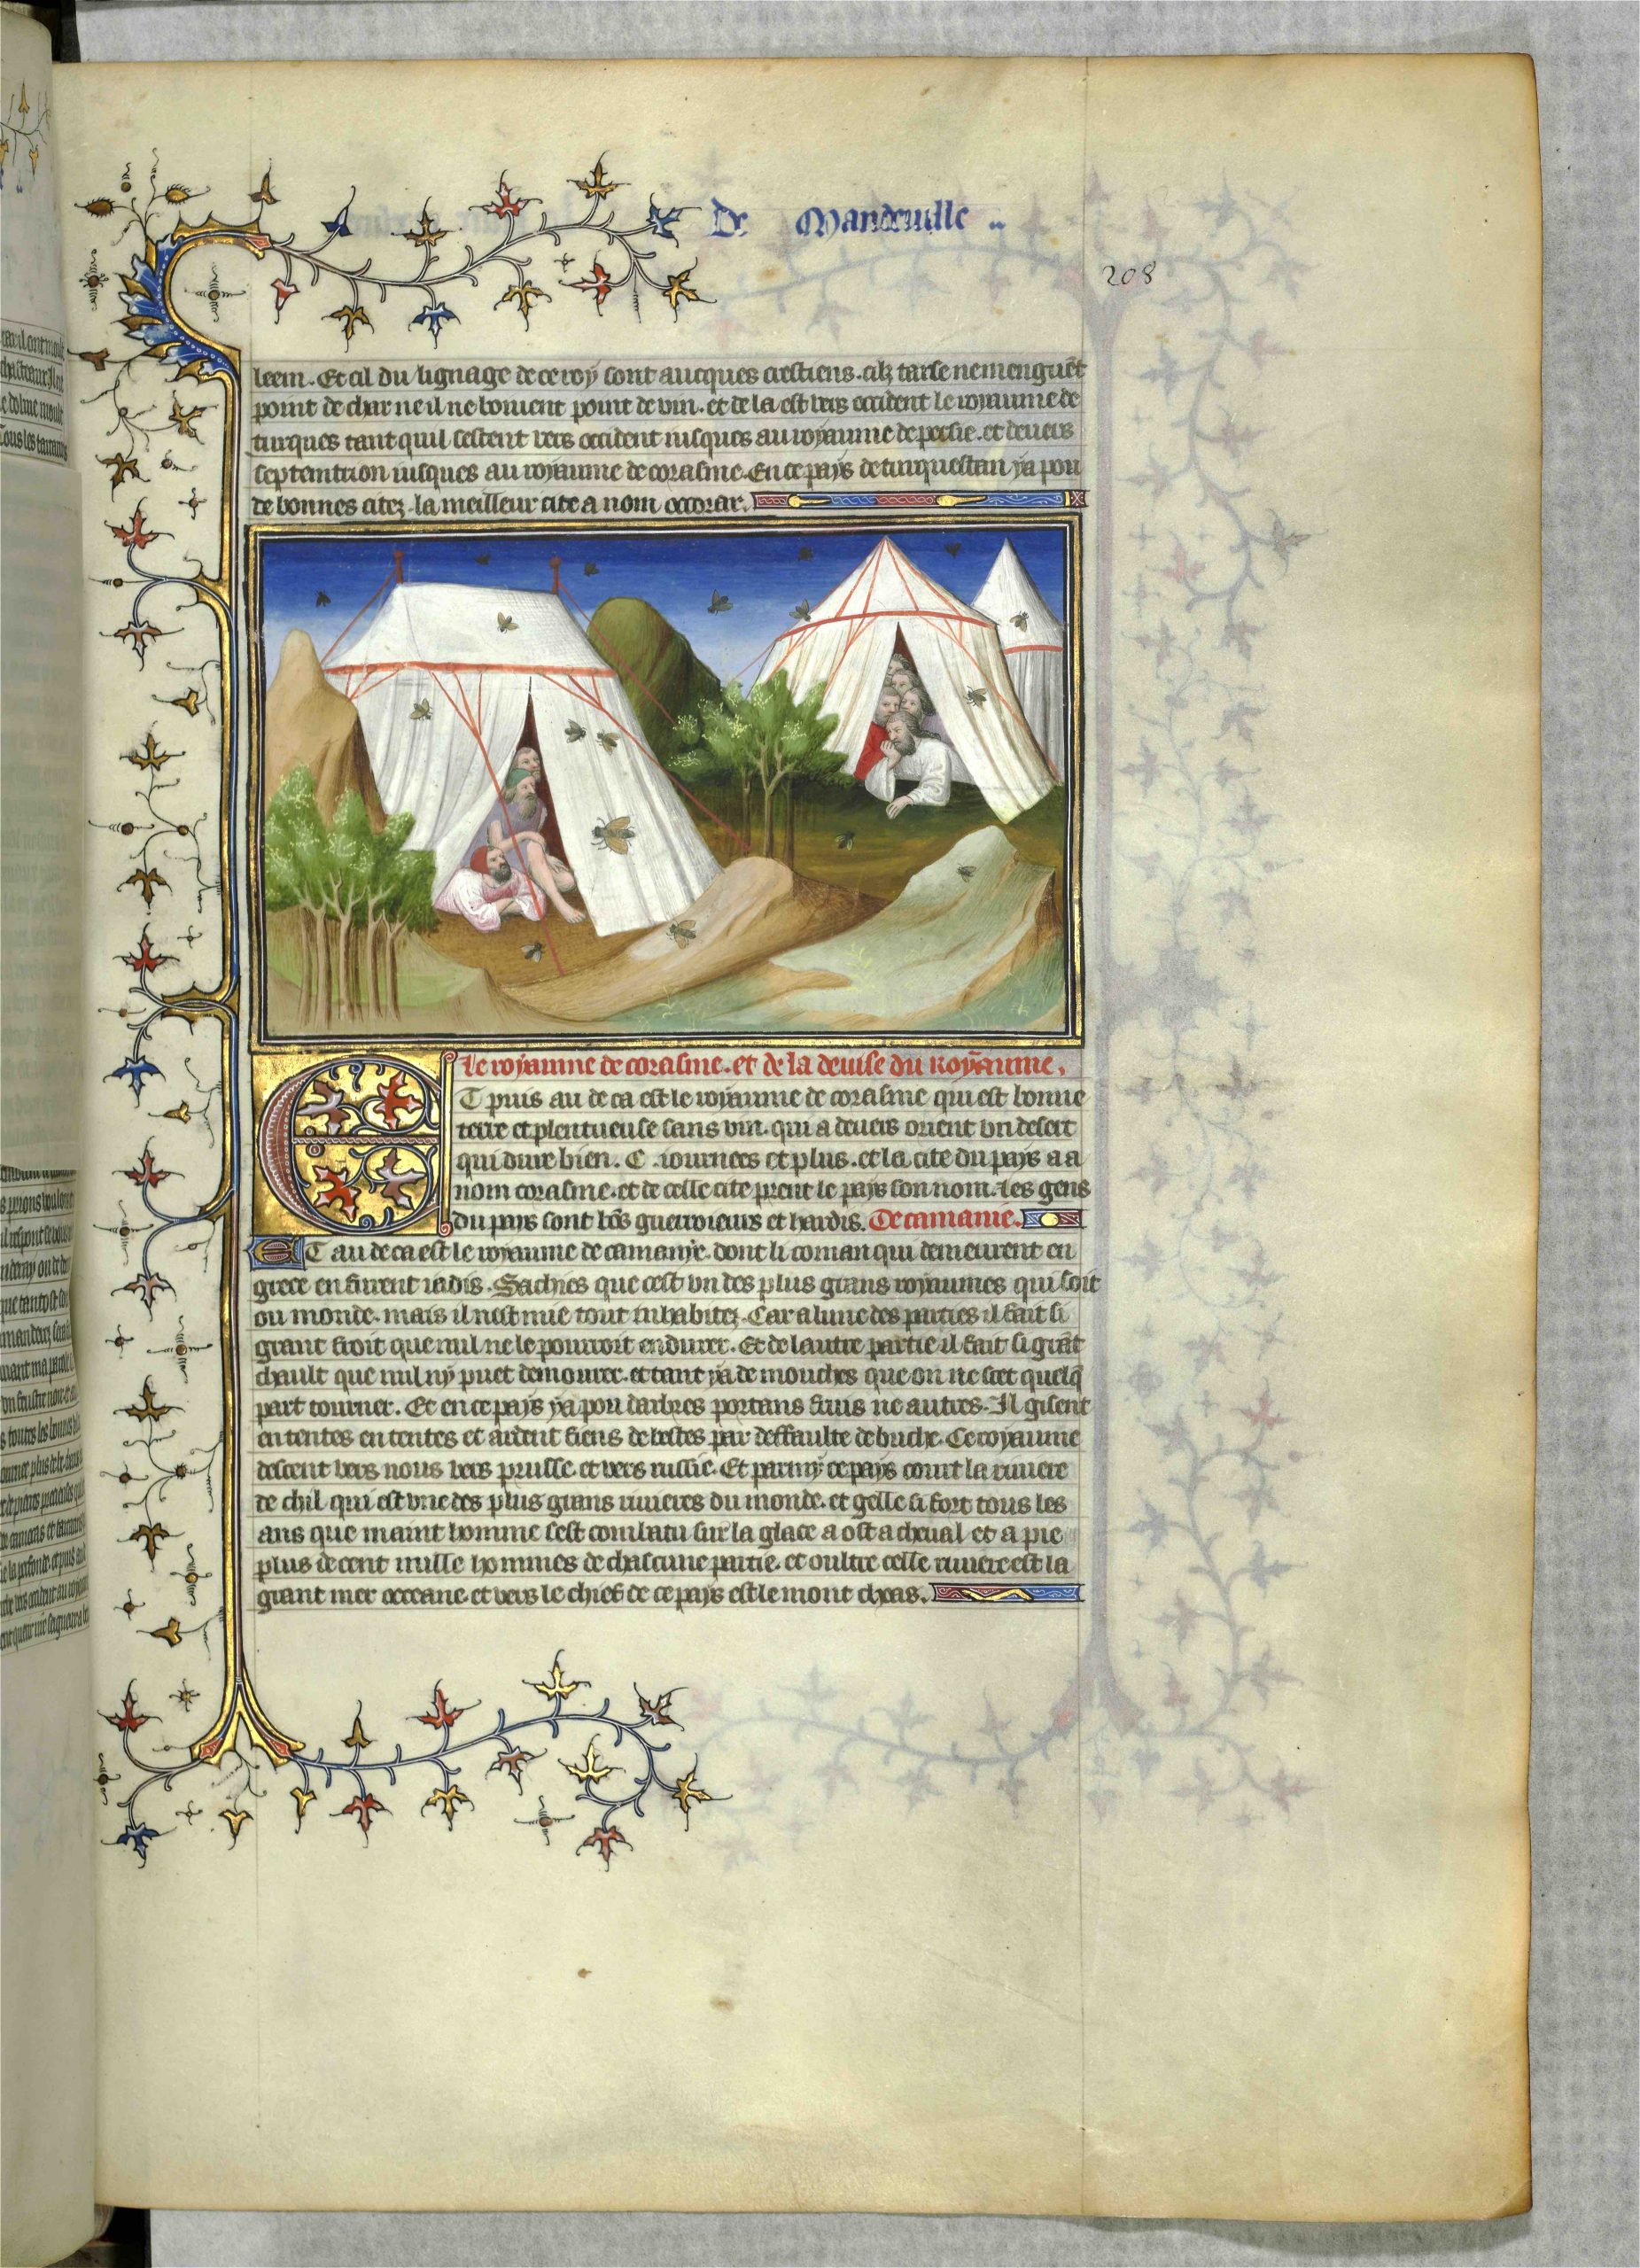 De Mandeuille
208
leem. Et cil du lignage de ce roy sont aucques crestiens. cilz tarse nemenguēt
point de char ne il ne boiuent point de vin. et de la est vers occident le royaume de
turques tant quil sestent vers occident iusques au royaume de persie. et deuers
septentrion iusques au royaume de corasme. En ce pays de turquestan ya pou
de bonnes citez. la meilleur cite a nom octorar.
Le royaume de corasme. et de la deuise du Royaume.
ET puis au de ca est le royaume de corasme qui est bonne
terre et plentueuse sans vin. qui a deuers orient vn desert
qui dure bien. C. iournees et plus. et la cite du pays a a
nom corasme. et de celle cite prent le pays son nom. Les gens
du pays sont bōs guerroieurs et hardis. De camanie.
ET au de ca est le royaume de camanye. dont li coman qui demeurent en
grece en furent iadis. Sachies que cest vn des plus grans royaumes qui soit
ou monde. mais il nest mie tout inhabitez. Car a lune des parties il fait si
grant froit que nul ne le pourroit endurer. Et de lautre partie il fait si grāt
chault que nul ny puet demourer. et tant ya de mouches que on ne scet quelq̄
part tourner. Et en ce pays ya pou darbres portans fruis ne autres. Il gisent
en tentes en tentes et ardent fiens de bestes par deffaulte de buche. Ce royaume
descent vers nous vers prusse. et vers russie. Et parmy ce pays court la riuiere
de chil qui est vne des plus grans riuieres du monde. et gelle si fort tous les
ans que maint homme sest combatu sur la glace a ost a cheual et a pie
plus de cent mille hommes de chascune partie. et oultre celle riuiere est la
grant mer occeane. et vers le chief de ce pays est le mont choas.